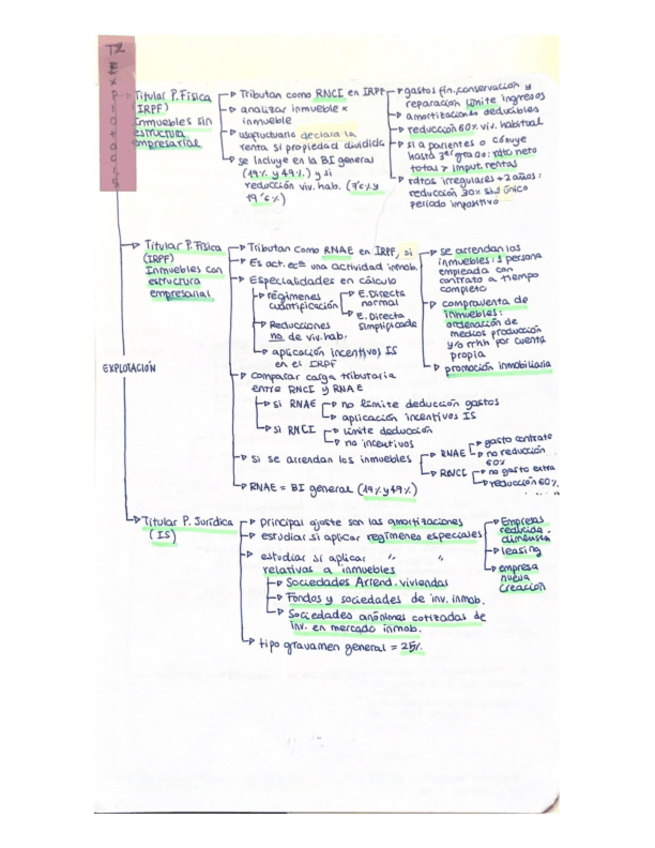 T2
EXPLOTACIÓN
Titular P. Física
(IRPF)
Inmuebles sin
estructura
empresarial
Tributan como RNCI en IRPF
analizar inmueble x
inmueble
usufructuario declara la
renta si propiedad dividida
se incluye en la BI general
(19% y 49%) y si
reducción viv. hab. (7'6% y
19'6%)
gastos fin, conservación y
reparación límite ingresos
amortizaciones deducibles
reducción 60% viv. habitual
si a parientes o cónyuge
hasta 3er grado: rdto neto
total > imput. rentas
rdtos irregulares +2 años:
reducción 30% si único
periodo impositivo
Titular P. Física
(IRPF)
Inmuebles con
estructura
empresarial
Tributan como RNAE en IRPF, si
Es act. ecca una actividad inmob.
Especialidades en cálculo
regímenes
cuantificación
E. Directa
normal
E. Directa
simplificada
Reducciones
no de viv. hab.
aplicación incentivos IS
en el IRPF
se arriendan los
inmuebles: 1 persona
empleada con
contrato a tiempo
completo
compraventa de
inmuebles:
ordenación de
medios producción
y/o rrhh por cuenta
propia
promoción inmobiliaria
comparar carga tributaria
entre RNCI y RNAE
si RNAE
no límite deducción gastos
aplicación incentivos IS
si RNCI
límite deducción
no incentivos
Si se arriendan los inmuebles
RNAE
gasto contrato
no reducción
60%
RNCI
no gasto extra
reducción 60%
RNAE = BI general (19% y 49%)
Titular P. Jurídica
(IS)
principal ajuste son las amortizaciones
estudiar si aplicar regímenes especiales
Empresa
reducida
dimensión
leasing
empresa
nueva
creación
estudiar si aplicar " "
relativos a inmuebles
Sociedades Arrend. viviendas
Fondos y sociedades de inv. inmob.
Sociedades anónimas cotizadas de
inv. en mercado inmob.
tipo gravamen general = 25%